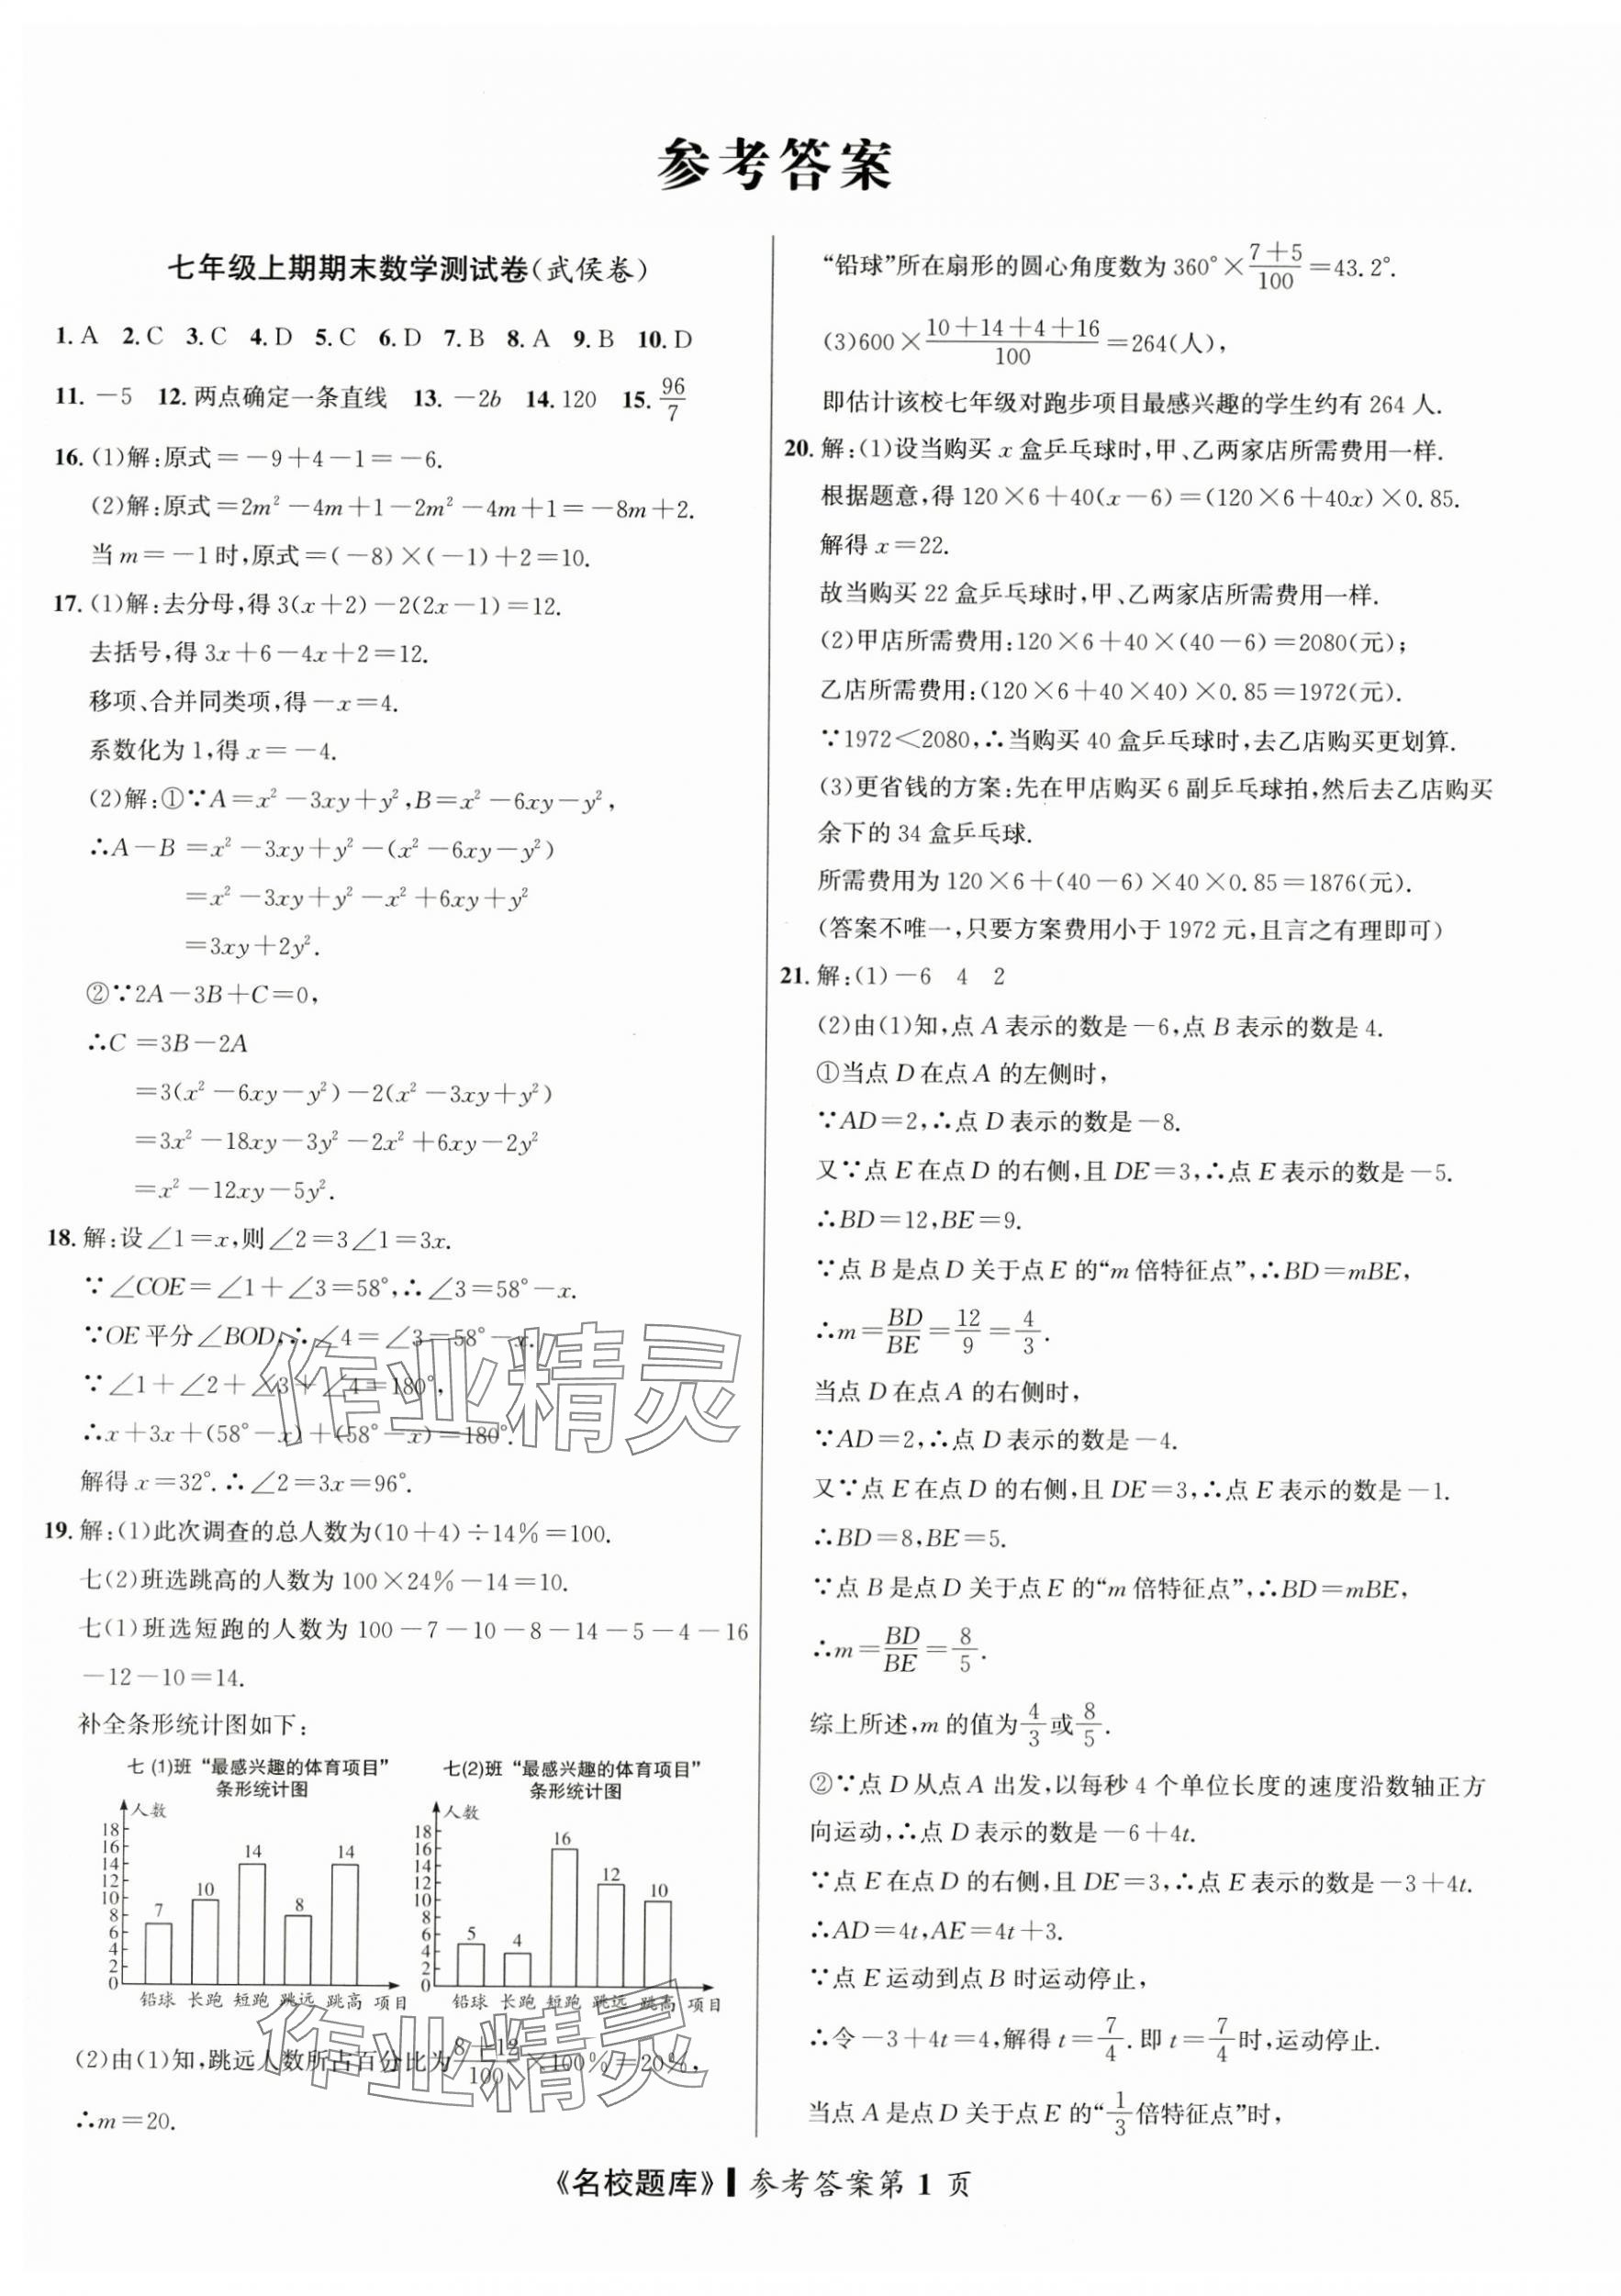 参考答案
七年级上期期末数学测试卷(武侯卷)
1. A 2. C 3. C 4. D 5. C 6. D 7. B 8. A 9. B 10. D
11. －5 12. 两点确定一条直线 13. －2b 14. 120 15. 96/7
16. (1)解:原式＝－9＋4－1＝－6.
(2)解:原式＝2m²－4m＋1－2m²－4m＋1＝－8m＋2.
当 m＝－1时,原式＝(－8)×(－1)＋2＝10.
17. (1)解:去分母,得 3(x＋2)－2(2x－1)＝12.
去括号,得 3x＋6－4x＋2＝12.
移项、合并同类项,得－x＝4.
系数化为 1,得 x＝－4.
(2)解:①∵A＝x²－3xy＋y²,B＝x²－6xy－y²,
∴A－B ＝x²－3xy＋y²－(x²－6xy－y²)
＝x²－3xy＋y²－x²＋6xy＋y²
＝3xy＋2y².
②∵2A－3B＋C＝0,
∴C ＝3B－2A
＝3(x²－6xy－y²)－2(x²－3xy＋y²)
＝3x²－18xy－3y²－2x²＋6xy－2y²
＝x²－12xy－5y².
18. 解:设∠1＝x,则∠2＝3∠1＝3x.
∵∠COE＝∠1＋∠3＝58°,∴∠3＝58°－x.
∵OE 平分∠BOD,∴∠4＝∠3＝58°－x.
∵∠1＋∠2＋∠3＋∠4＝180°,
∴x＋3x＋(58°－x)＋(58°－x)＝180°.
解得 x＝32°.∴∠2＝3x＝96°.
19. 解:(1)此次调查的总人数为(10＋4)÷14%＝100.
七(2)班选跳高的人数为 100×24%－14＝10.
七(1)班选短跑的人数为 100－7－10－8－14－5－4－16
－12－10＝14.
补全条形统计图如下:
七 (1)班 “最感兴趣的体育项目”
条形统计图
人数
18
16
14
12
10
8
6
4
2
0
7 10 14 8 14
铅球 长跑 短跑 跳远 跳高 项目
七(2)班 “最感兴趣的体育项目”
条形统计图
人数
18
16
14
12
10
8
6
4
2
0
5 4 16 12 10
铅球 长跑 短跑 跳远 跳高 项目
(2)由(1)知,跳远人数所占百分比为(8＋12)/100×100%＝20%,
∴m＝20.
“铅球”所在扇形的圆心角度数为 360°×(7＋5)/100＝43.2°.
(3)600×(10＋14＋4＋16)/100＝264(人),
即估计该校七年级对跑步项目最感兴趣的学生约有 264 人.
20. 解:(1)设当购买 x 盒乒乓球时,甲、乙两家店所需费用一样.
根据题意,得 120×6＋40(x－6)＝(120×6＋40x)×0.85.
解得 x＝22.
故当购买 22 盒乒乓球时,甲、乙两家店所需费用一样.
(2)甲店所需费用:120×6＋40×(40－6)＝2080(元);
乙店所需费用:(120×6＋40×40)×0.85＝1972(元).
∵1972＜2080,∴当购买 40 盒乒乓球时,去乙店购买更划算.
(3)更省钱的方案:先在甲店购买 6 副乒乓球拍,然后去乙店购买
余下的 34 盒乒乓球.
所需费用为 120×6＋(40－6)×40×0.85＝1876(元).
(答案不唯一,只要方案费用小于 1972 元,且言之有理即可)
21. 解:(1)－6 4 2
(2)由(1)知,点 A 表示的数是－6,点 B 表示的数是 4.
①当点 D 在点 A 的左侧时,
∵AD＝2,∴点 D 表示的数是－8.
又∵点 E 在点 D 的右侧,且 DE＝3,∴点 E 表示的数是－5.
∴BD＝12,BE＝9.
∵点 B 是点 D 关于点 E 的“m 倍特征点”,∴BD＝mBE,
∴m＝BD/BE＝12/9＝4/3.
当点 D 在点 A 的右侧时,
∵AD＝2,∴点 D 表示的数是－4.
又∵点 E 在点 D 的右侧,且 DE＝3,∴点 E 表示的数是－1.
∴BD＝8,BE＝5.
∵点 B 是点 D 关于点 E 的“m 倍特征点”,∴BD＝mBE,
∴m＝BD/BE＝8/5.
综上所述,m 的值为4/3或8/5.
②∵点 D 从点 A 出发,以每秒 4 个单位长度的速度沿数轴正方
向运动,∴点 D 表示的数是－6＋4t.
∵点 E 在点 D 的右侧,且 DE＝3,∴点 E 表示的数是－3＋4t.
∴AD＝4t,AE＝4t＋3.
∵点 E 运动到点 B 时运动停止,
∴令－3＋4t＝4,解得 t＝7/4.即 t＝7/4时,运动停止.
当点 A 是点 D 关于点 E 的“1/3倍特征点”时,
作业精灵
作业精灵
《名校题库》 参考答案第 1 页